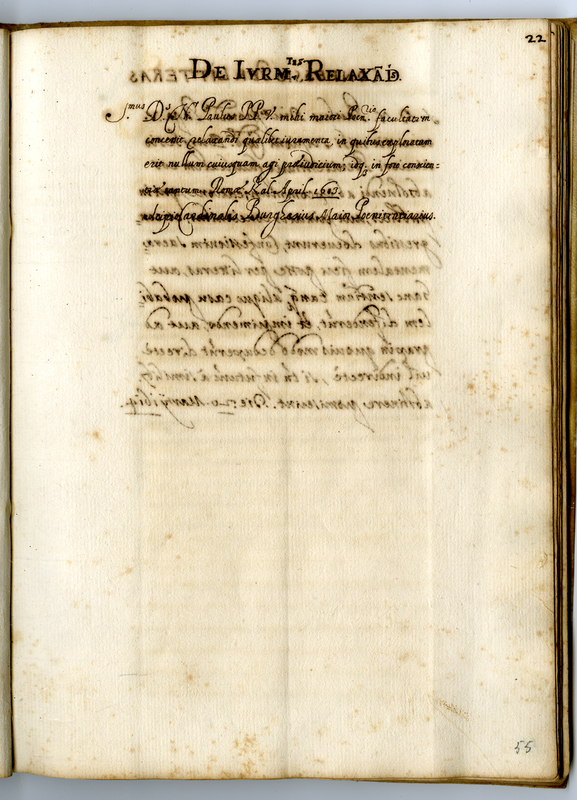 22
DE IVRM.TIS RELAXĀD.
S.mus D. N. Paulus PP. V. mihi maiori Poen.rio facultatem
concessit relaxandi quælibet iuramenta, in quibus exploratum
erit nullum cuiusquam agi præiudicium; idq. in foro conscien=
tiæ tantum. Romæ Kal. April. 1607.
Scipio Cardinalis Burghesius Maior Poenitentiarius.
55